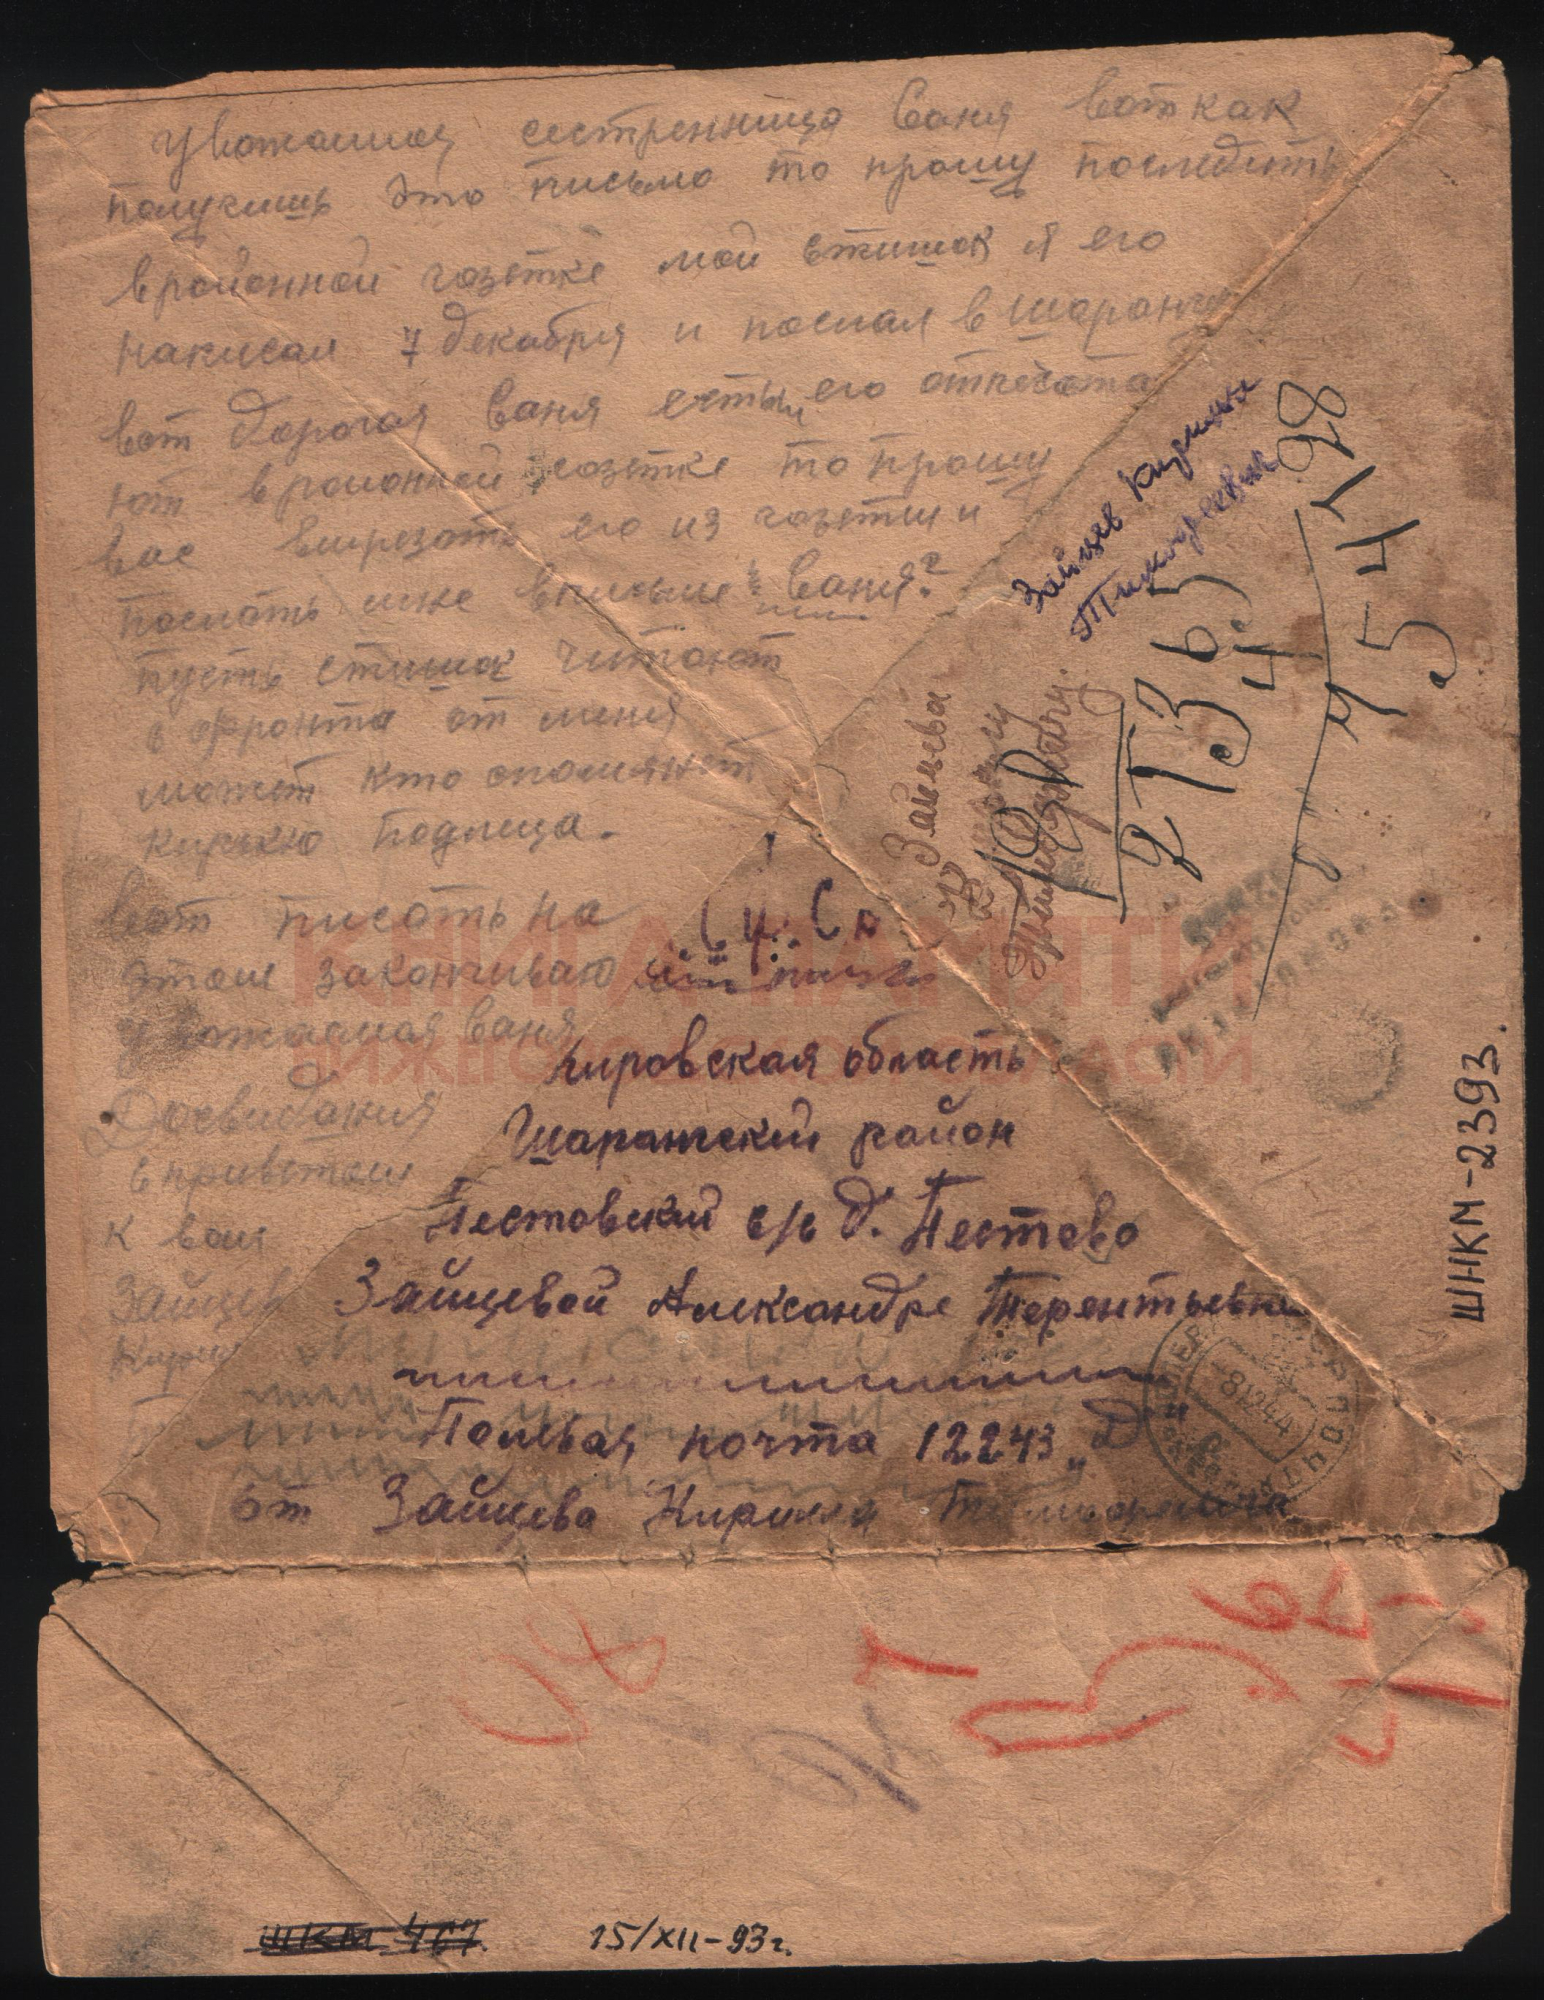 Уважаимая сестренница Саня вот как
получишь это письмо то прошу последить
в районной газетке мой стишок я его
написал 7 декабря и послал в Шарангу
вот дорогая Саня естьли его отпечата
ют в районной газетке то прошу
вас вырезать его из газетки и
послать мне в письме Саня?
пусть стишок читают
с фронта от меня
может кто спомянет
Кирькю подлеца.
вот писать на
этом заканчиваю
уважаемая Саня
Досвидания
с приветом
к вам
Зайцев
Кирил
Кировская область
Шарангский район
Пестовский с/с д. Пестово
Зайцевой Александре Терентьевне
Полевая почта 12243 „Д"
от Зайцева Кирилла Тимофеевича
Зайцев Кирилл
Тимофеевич
Зайцева
98
954
ШНКМ-2393.
8 12 44
ШКМ 467
15/XII-93г.
КНИГА ПАМЯТИ
НИЖЕГОРОДСКОЙ ОБЛАСТИ